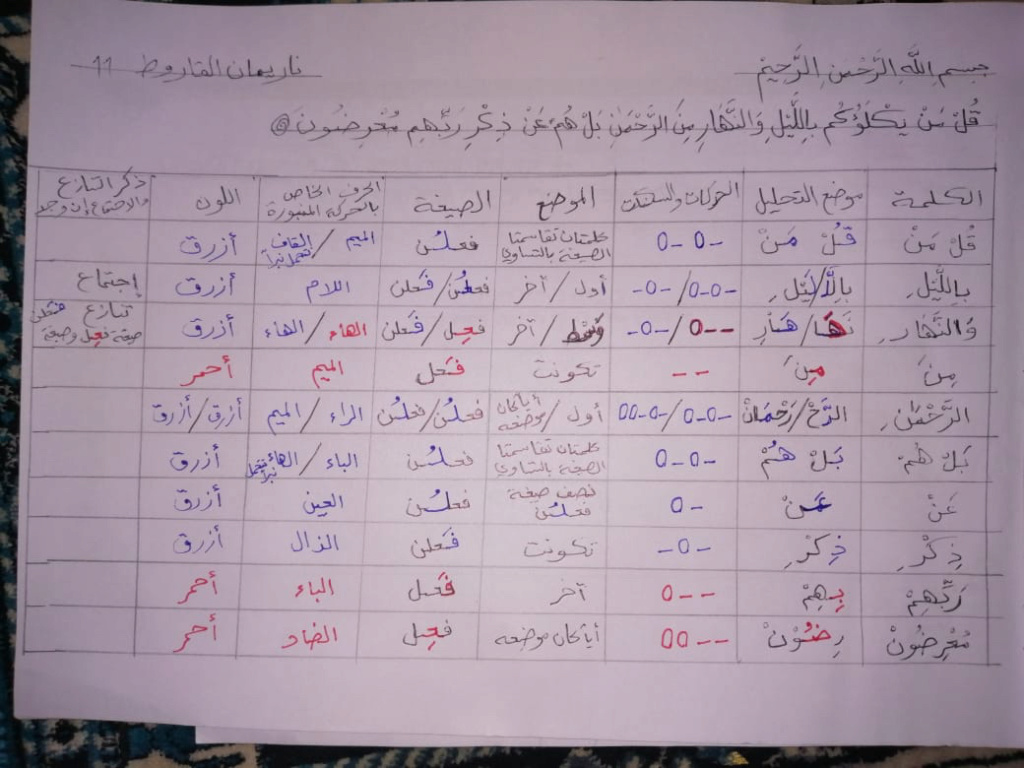 بسم اللَّهِ الرَّحْمٰنِ الرَّحِيمِ ناريمان القاروط 11
قُلْ مَنْ يَكْلَؤُكُم بِاللَّيْلِ وَالنَّهَارِ مِنَ الرَّحْمَٰنِ بَلْ هُمْ عَنْ ذِكْرِ رَبِّهِم مُعْرِضُونَ
الكلمة موضع التحليل الحركات والسكنات الموضع الصيغة الحرف الخاص بالحركة المنبورة اللون ذكر التنازع والاجتماع إن وجد
قُلْ مَنْ قُلْ مَنْ -o -o كلمتان تقاسمتا الصيغة بالتساوي فعلُن الميم / القاف أزرق
بِاللَّيْلِ بِالْ/لَيْلِ -o-o/-o- أول / آخر فعلُن/فَعلن اللام أزرق إجتماع
وَالنَّهَارِ نَهَا/هَارِ --o/-o- وسط / آخر فعِل/فَعلن الهاء / الهاء أزرق تنازع صيغة فعِل وصيغة فَعلن
مِنَ مِنَ -- تكونت فَعل الميم أحمر
الرَّحْمَانِ الرَّحْ/رَحْمَانْ -o-o/-o-oo أول / أيا كان موضعه فعلُن/فعلُن الراء / الميم أزرق/أزرق
بَلْ هُمْ بَلْ هُمْ -o-o كلمتان تقاسمتا الصيغة بالتساوي فعلُن الباء / الهاء أزرق
عَنْ عَنْ -o نصف صيغة فعلُن فعلُن العين أزرق
ذِكْرِ ذِكْرِ -o- تكونت فَعلن الذال أزرق
رَبِّهِمْ بِهِمْ --o آخر فَعل الباء أحمر
مُعْرِضُونْ رِضُونْ --oo أيا كان موضعه فعِل الضاد أحمر